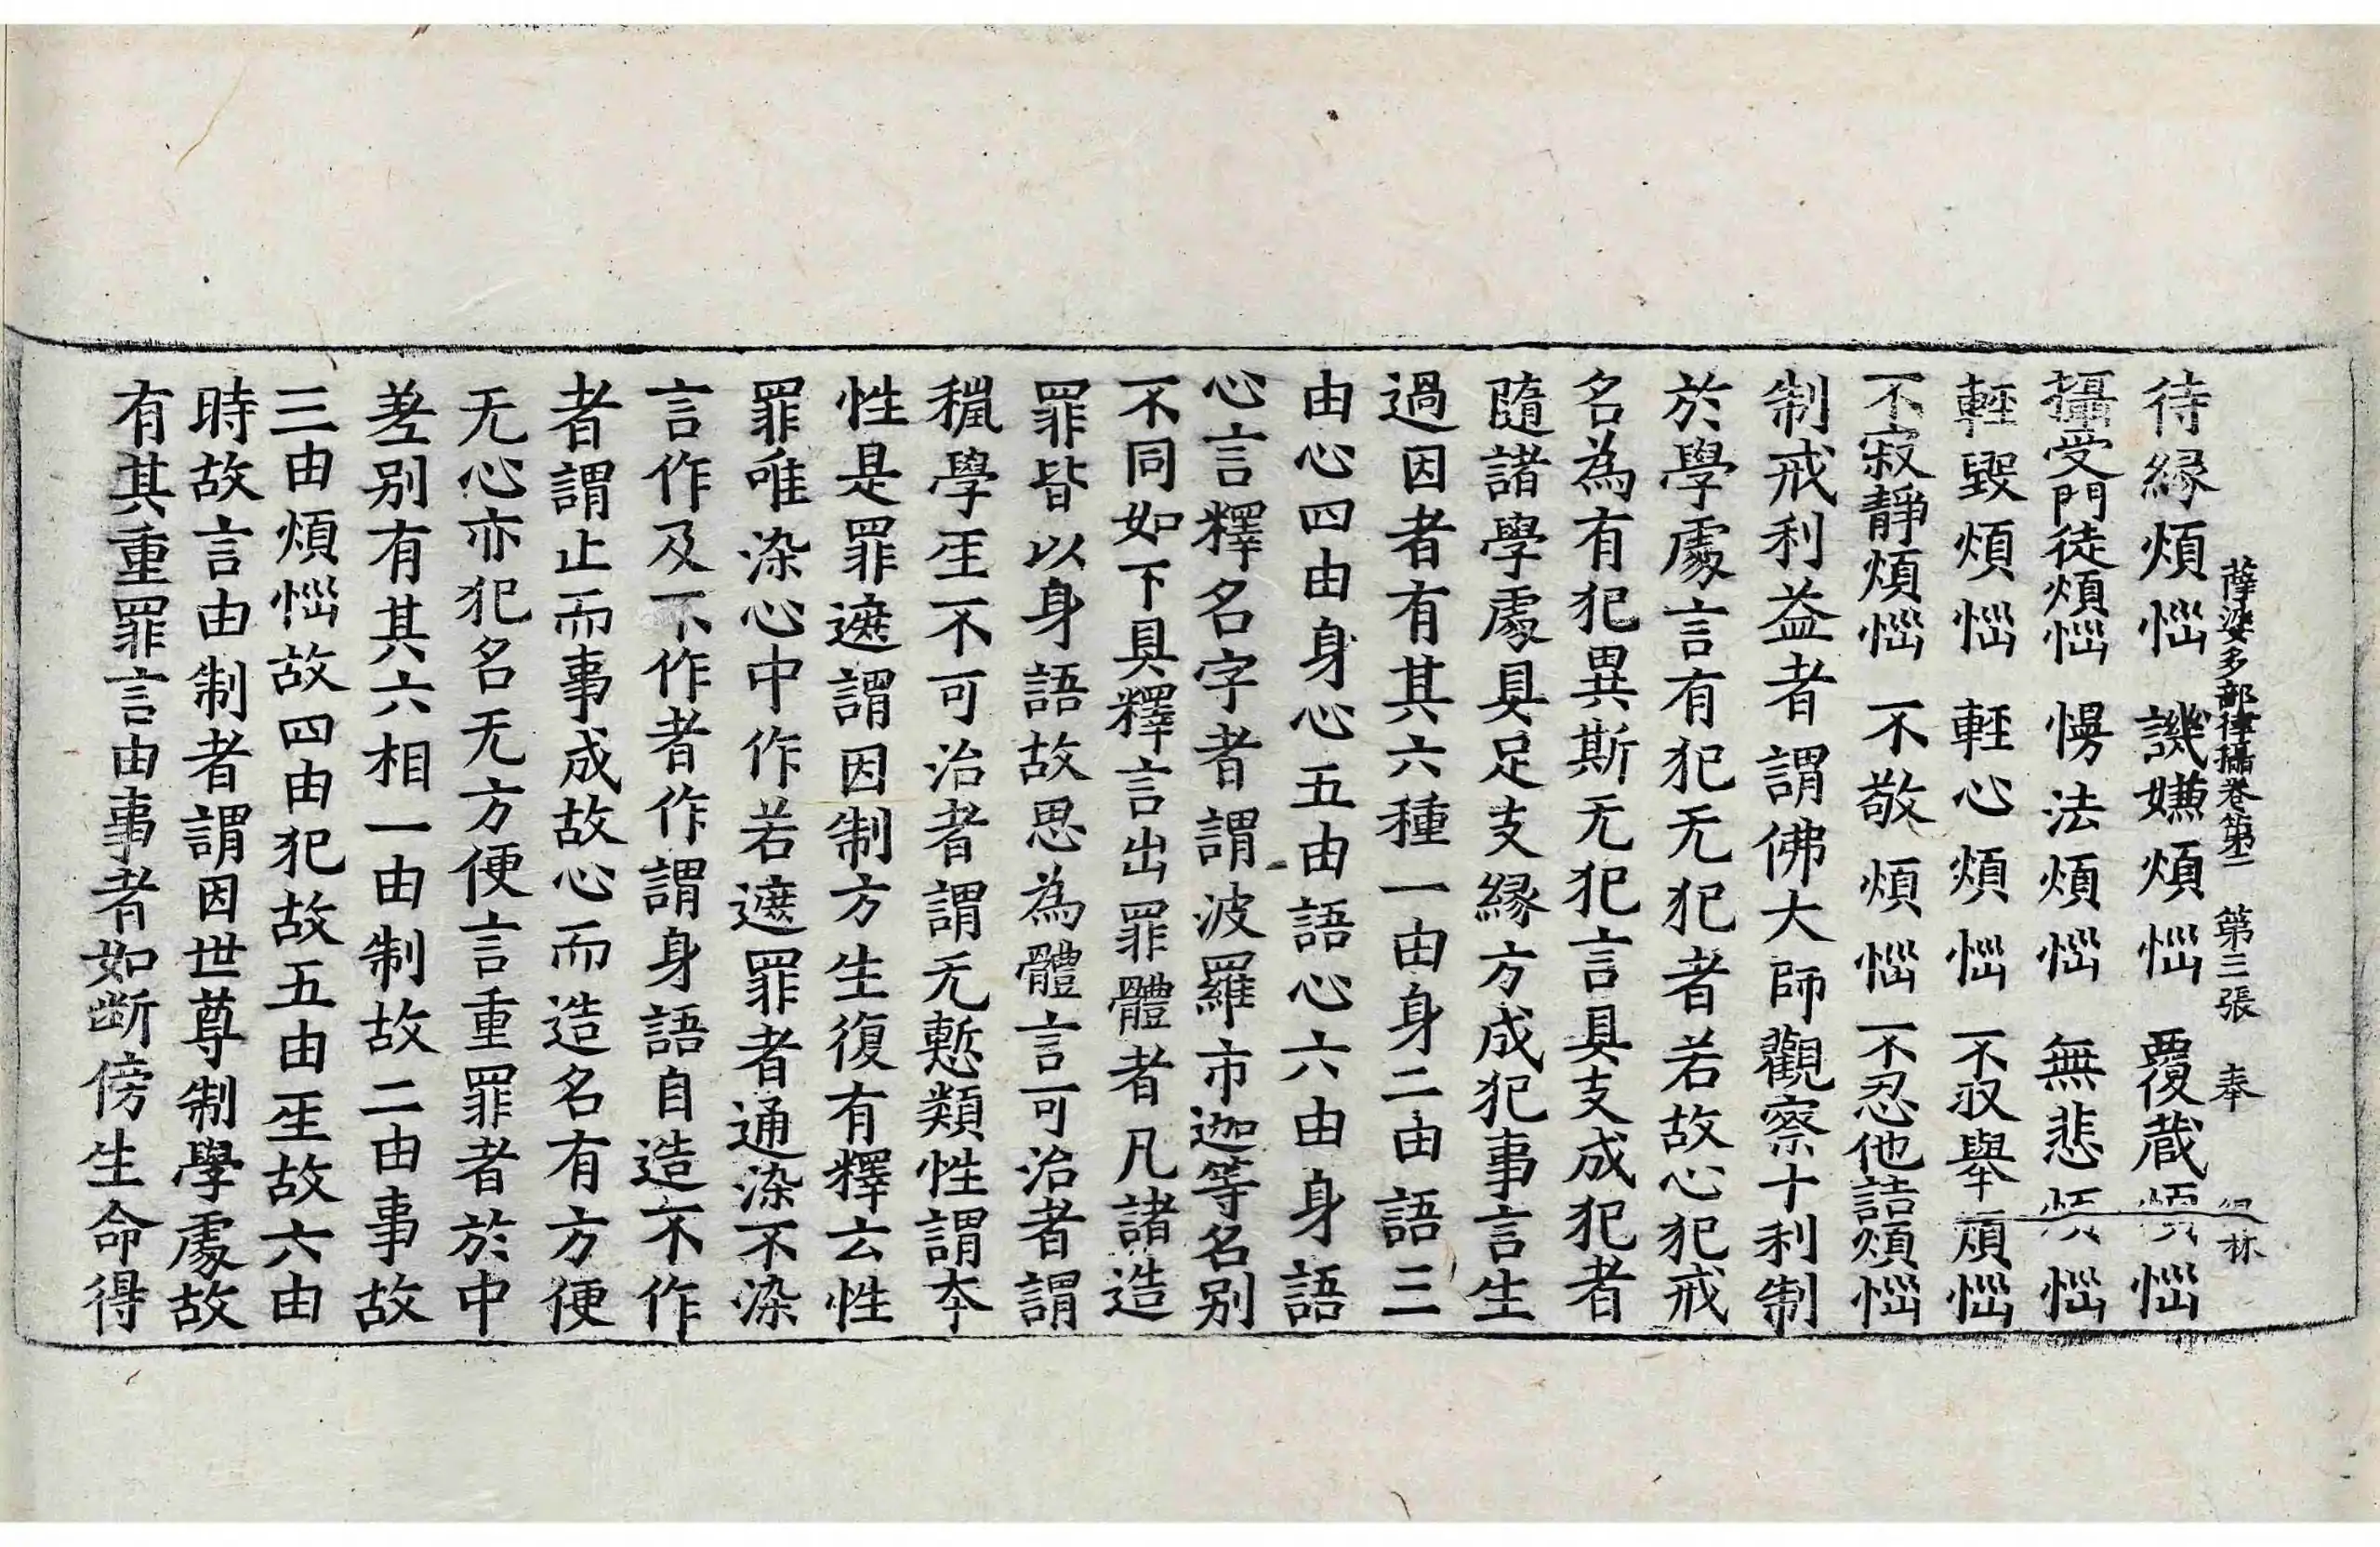 薩婆多部律攝卷第二 第三張 奉
待縁煩惱 譏嫌煩惱 覆蔵煩惱
攝受門徒煩惱 慢法煩惱 無悲煩惱
輕毀煩惱 輕心煩惱 不収舉煩惱
不寂靜煩惱 不敬煩惱 不忍他詰煩惱
制戒利益者謂佛大師觀察十利制
於學處言有犯无犯者若故心犯戒
名為有犯異斯无犯言具支成犯者
隨諸學處具足支縁方成犯事言生
過因者有其六種一由身二由語三
由心四由身心五由語心六由身語
心言釋名字者謂波羅市迦等名別
不同如下具釋言出罪體者凡諸造
罪皆以身語故思為體言可治者謂
穊學𤯔不可治者謂无慙類性謂本
性是罪遮謂因制方生復有釋云性
罪唯染心中作若遮罪者通染不染
言作及不作者作謂身語自造不作
者謂止而事成故心而造名有方便
无心亦犯名无方便言重罪者於中
差别有其六相一由制故二由事故
三由煩惱故四由犯故五由𤯔故六由
時故言由制者謂因世尊制學處故
有其重罪言由事者如断傍生命得